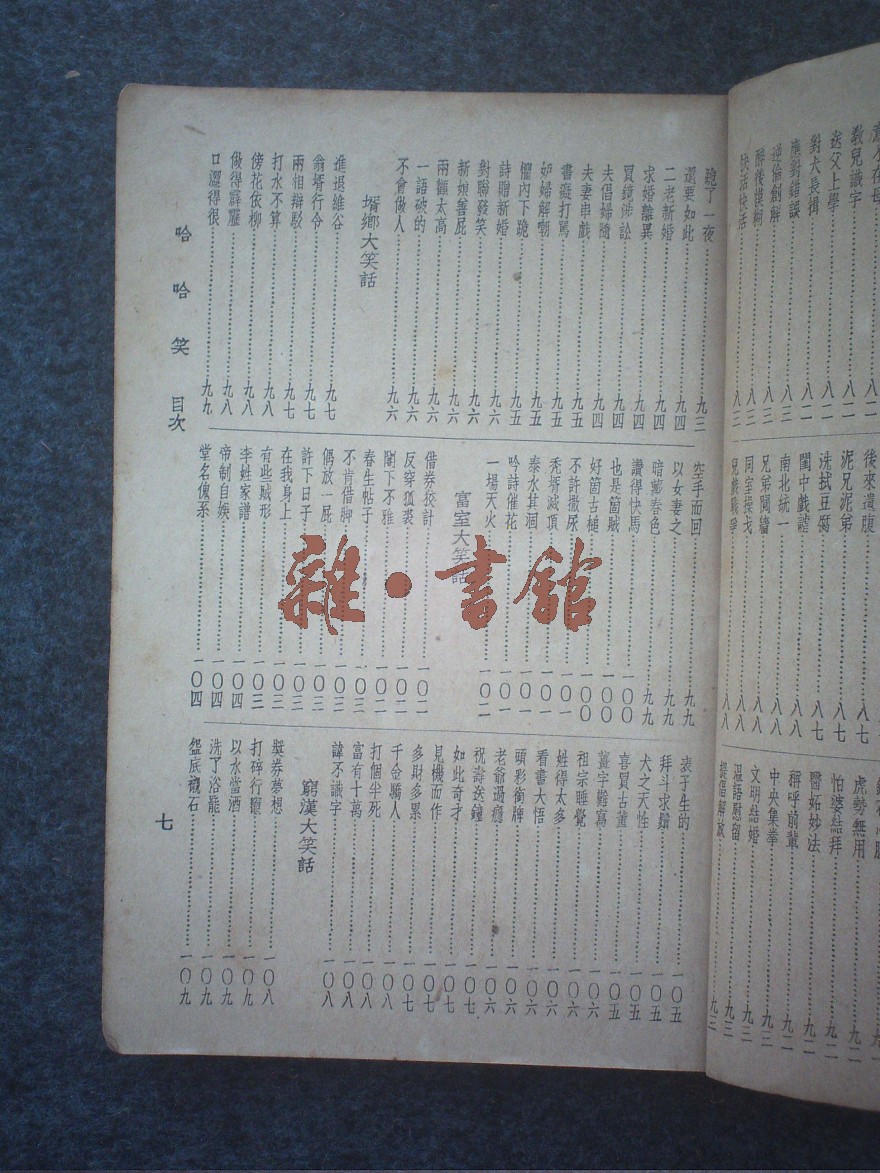 教兒識字
送父上學……八一
對犬長揖……八一
應對錯誤……八二
逆倫創解……八二
醉後模糊……八二
快活快活……八三
後來遺腹……八七
泥兄泥弟……八七
洗拭豆腐……八七
閨中戲謔……八七
南北統一……八八
兄弟鬩牆……八八
同室操戈……八八
兄戲戰爭……八八
虎勢無用……九二
怕婆結拜……九二
醫妬妙法……九二
稱呼前輩……九二
中央集拳……九三
文明結婚……九三
溫語慰留……九三
提倡解放……九三
聽了一夜……九三
還要如此……九四
二老新婚……九四
求婚離異……九四
買鏡涉訟……九四
夫倡婦隨……九四
夫妻串戲……九五
書癡打罵……九五
妒婦解嘲……九五
懼內下跪……九五
詩贈新婚……九六
對聯發笑……九六
新娘善屁……九六
兩額太高……九六
一語破的……九六
不會做人……九六
壻鄉大笑話
進退維谷……九七
翁壻行令……九七
兩相辯駁……九七
打水不算……九八
傍花依柳……九八
做得霹靂……九八
口溫得很……九九
空手而回……九九
以女妻之……九九
暗藏春色……九九
讚得快馬……一〇〇
也是箇賊……一〇〇
好箇古槌……一〇〇
不許撒尿……一〇一
禿壻滅頂……一〇一
泰水其涸……一〇一
吟詩催花……一〇一
一場天火……一〇二
富室大笑話
借券狡計……一〇二
反穿狐裘……一〇二
閣下不雅……一〇二
春生帖子……一〇三
不肯借脚……一〇三
偶放一屁……一〇三
許下日子……一〇三
在我身上……一〇三
有些賊形……一〇三
李姓家譜……一〇四
帝制自娛……一〇四
堂名傀系……一〇四
表子生的……一〇五
拜斗求鬍……一〇五
犬之天性……一〇五
喜買古董……一〇五
薑字難寫……一〇六
祖宗睡覺……一〇六
姓得太多……一〇六
看書大悟……一〇六
頭彩銜牌……一〇六
老爺過癮……一〇六
祝壽送鐘……一〇七
如此奇才……一〇七
見機而作……一〇七
多財多累……一〇七
千金驕人……一〇八
打個半死……一〇八
富有十萬……一〇八
諱不識字……一〇八
窮漢大笑話
獎券夢想……一〇八
打碎行竈……一〇九
以水當酒……一〇九
洗了浴罷……一〇九
盤底襯石……一〇九
哈哈笑 目次
七
雜·書館